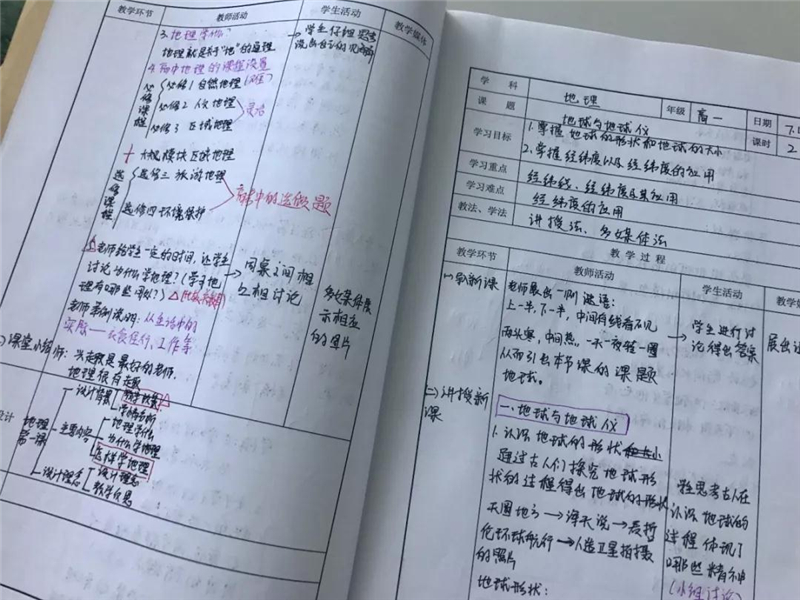 教学环节 教师活动 学生活动 教学媒体
3. 地理学的
地理就是关于"地"的道理
4. 高中地理的课程设置
必修课程
必修1 自然地理
必修2 人文地理
必修3 区域地理
选修课程
选修三 旅游地理
选修四 环境保护
高考中的选做题
学生仔细思考
说出自己的见解
老师给学生一定的时间,让学生
讨论为什么学地理?(学习地
理有哪些用处?)
老师举例说明:从生活中的
实际——衣食住行、工作等
同桌之间相
互相讨论
多媒体展
示相应
的图片
课堂小结
兴趣就是最好的老师.
地理很有趣
设计
地理
第一课
设计背景
教学背景
学情分析
主要内容
地理学什么
为什么学地理
怎样学地理
设计理念
设计理念
教学反思
学 科 地理 年级 高一 日期 7.
课 题 地球与地球仪 课时 2
学习目标 1.掌握地球的形状和地球的大小
2.掌握经纬度以及经纬度的应用
学习重点 经纬线、经纬度及其应用
学习难点 经纬度的应用
教法、学法 讲授法、多媒体法
教 学 过 程
教学环节 教师活动 学生活动
(一)导新课
老师展出一则谜语:
上一半,下一半,中间有线看不见
两头寒,中间热,一天一夜转一圈
从而引出本节课的课题
地球。
学生进行讨
论得出答案
(二)讲授新
课
一、地球与地球仪
1.认识地球的形状和大小
通过古人们探究地球形
状的过程得出地球的形状
天圆地方→浑天说→麦哲
伦环球航行→人造卫星拍摄
的照片
地球形状:
思考古人在
认识地球的
过程体现了
哪些精神
(小组讨论)